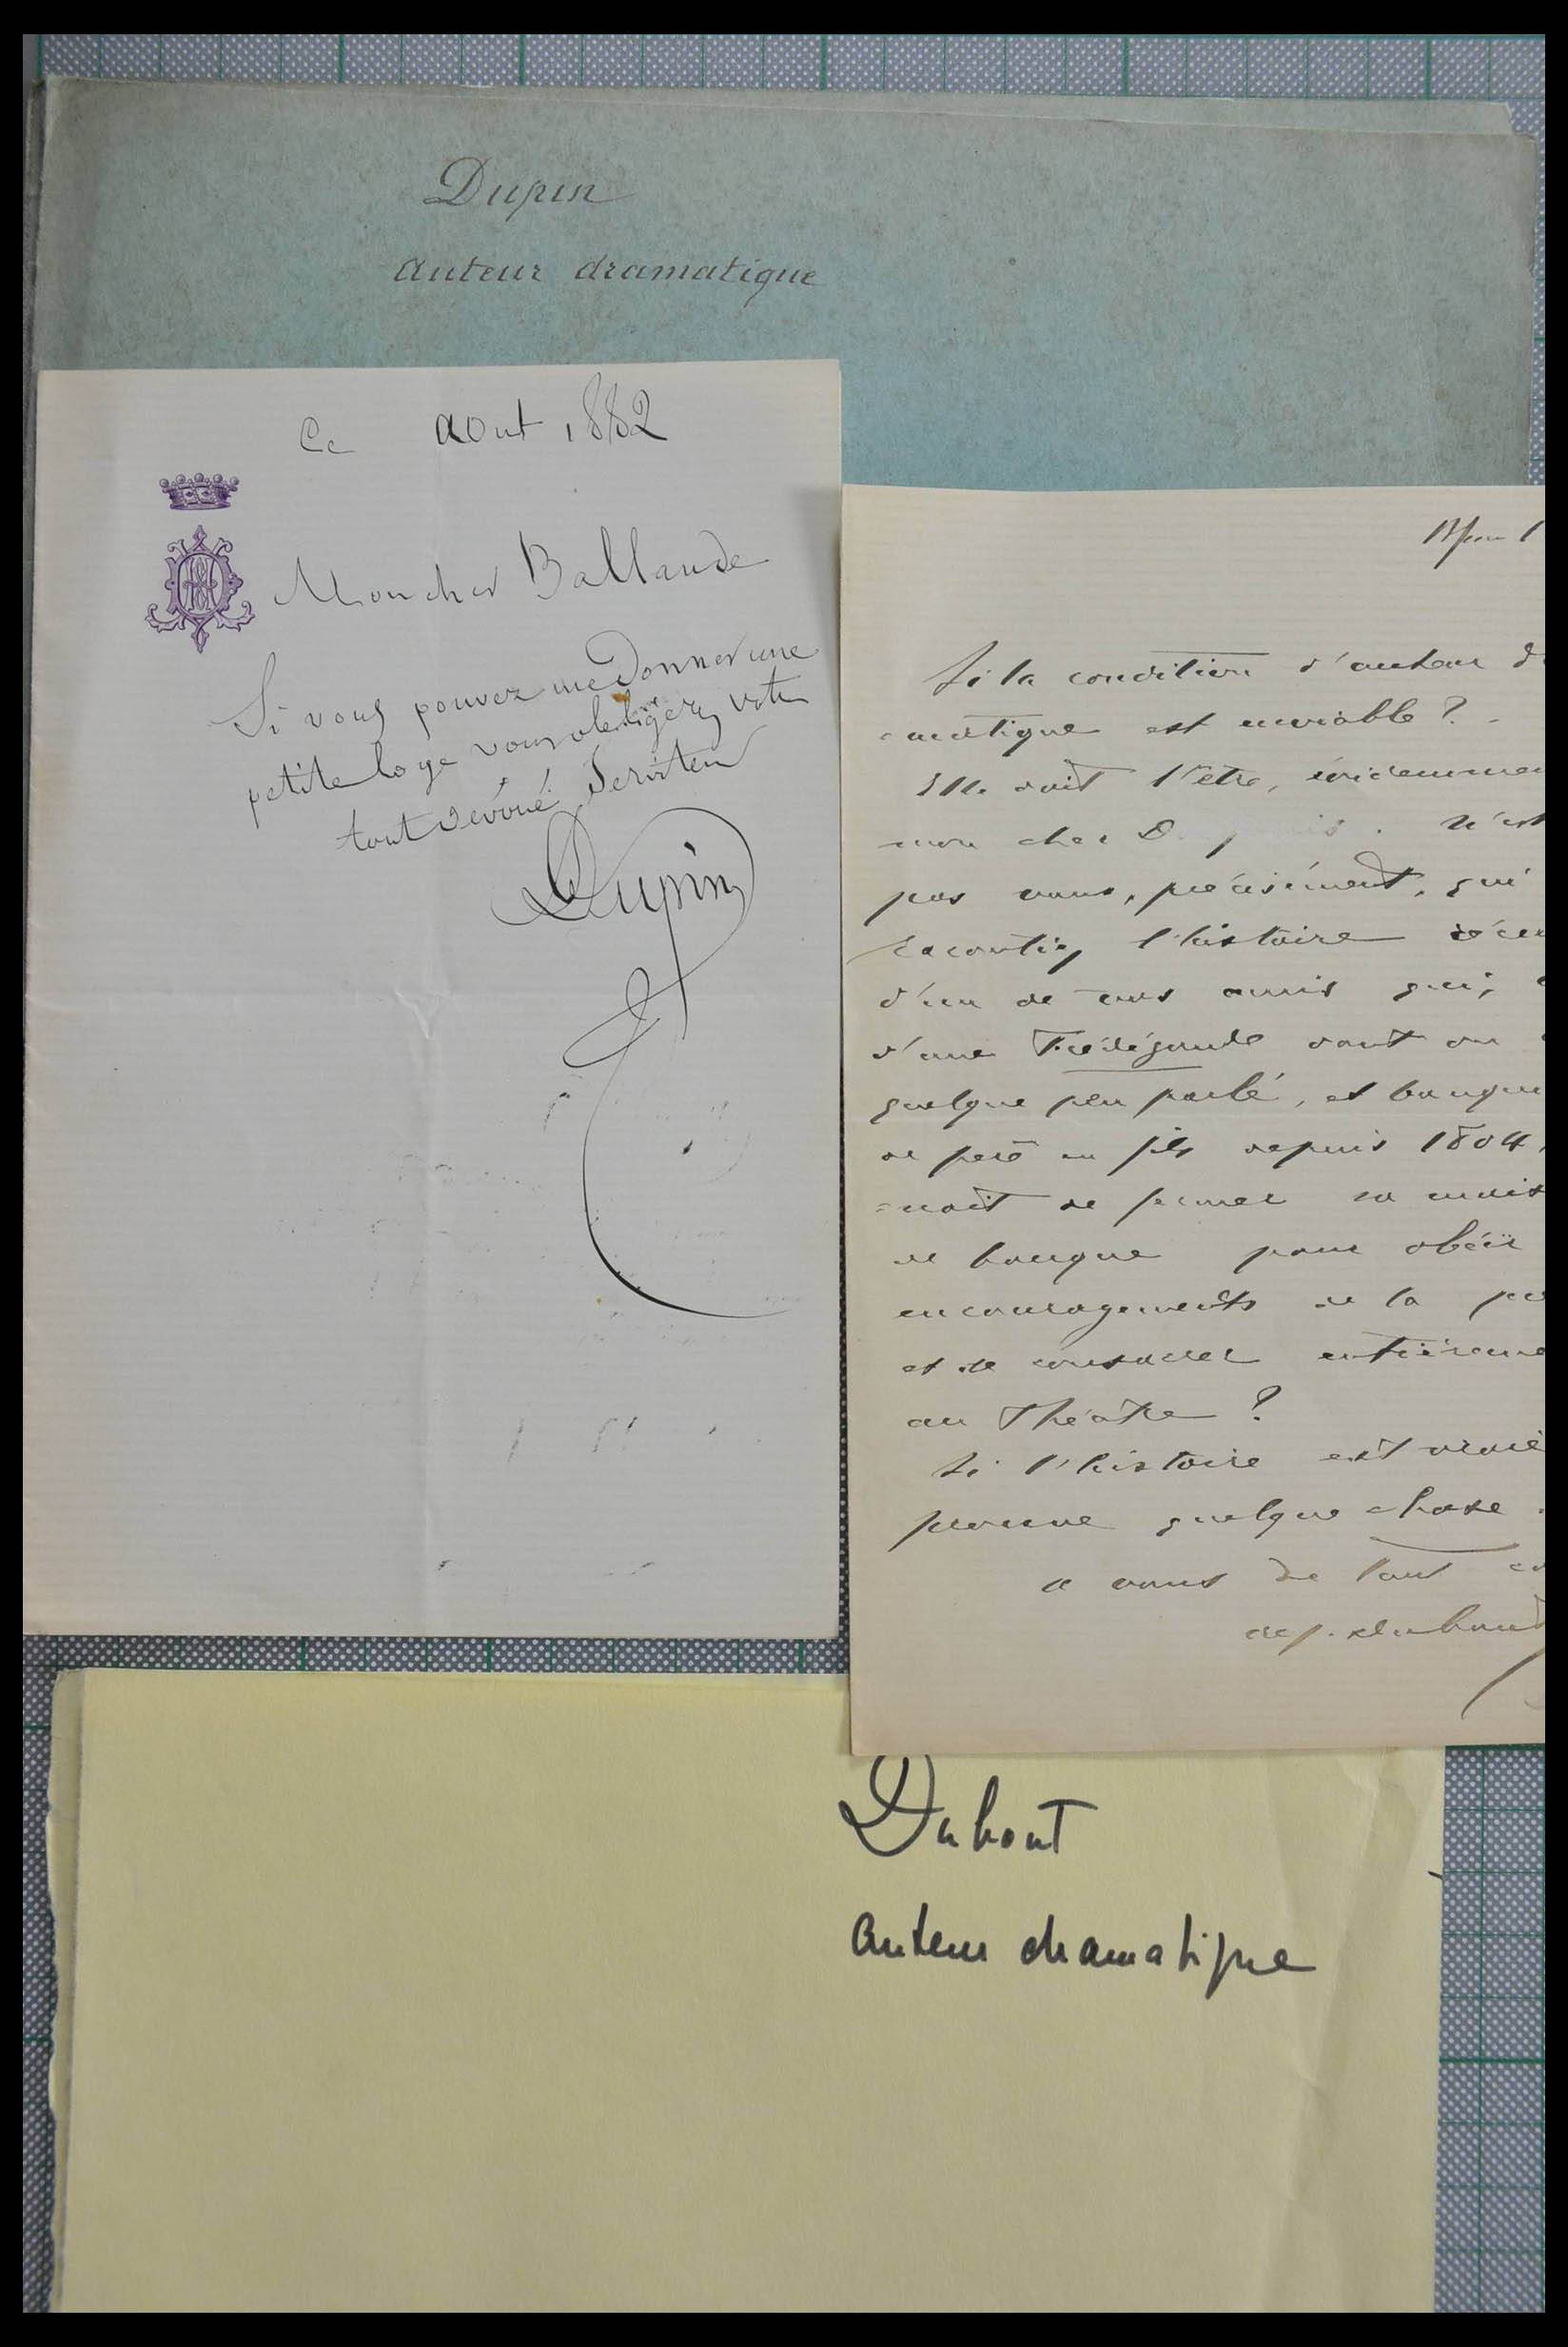 Dupin
auteur dramatique
Ce aout 1882
Mon cher Ballande
Si vous pouvez me donner une
petite loge vous obligerez votre
tout dévoué Serviteur
Dupin
Si la condition d'auteur d
matique est enviable ?
Elle doit l'être, évidemmen
mon cher D. N'est
pas vous, précisément, qui
racontiez l'histoire
d'un de vos amis qui,
d'une Frédégonde dont on
quelque peu parlé, et banqui
de père en fils depuis 1804,
nait de fermer sa mais
de banque pour obéir
encouragements de la
et se consacrer entièreme
au Théâtre ?
Si l'histoire est vraie
prouve quelque chose
à vous de tout
Dubout
auteur dramatique